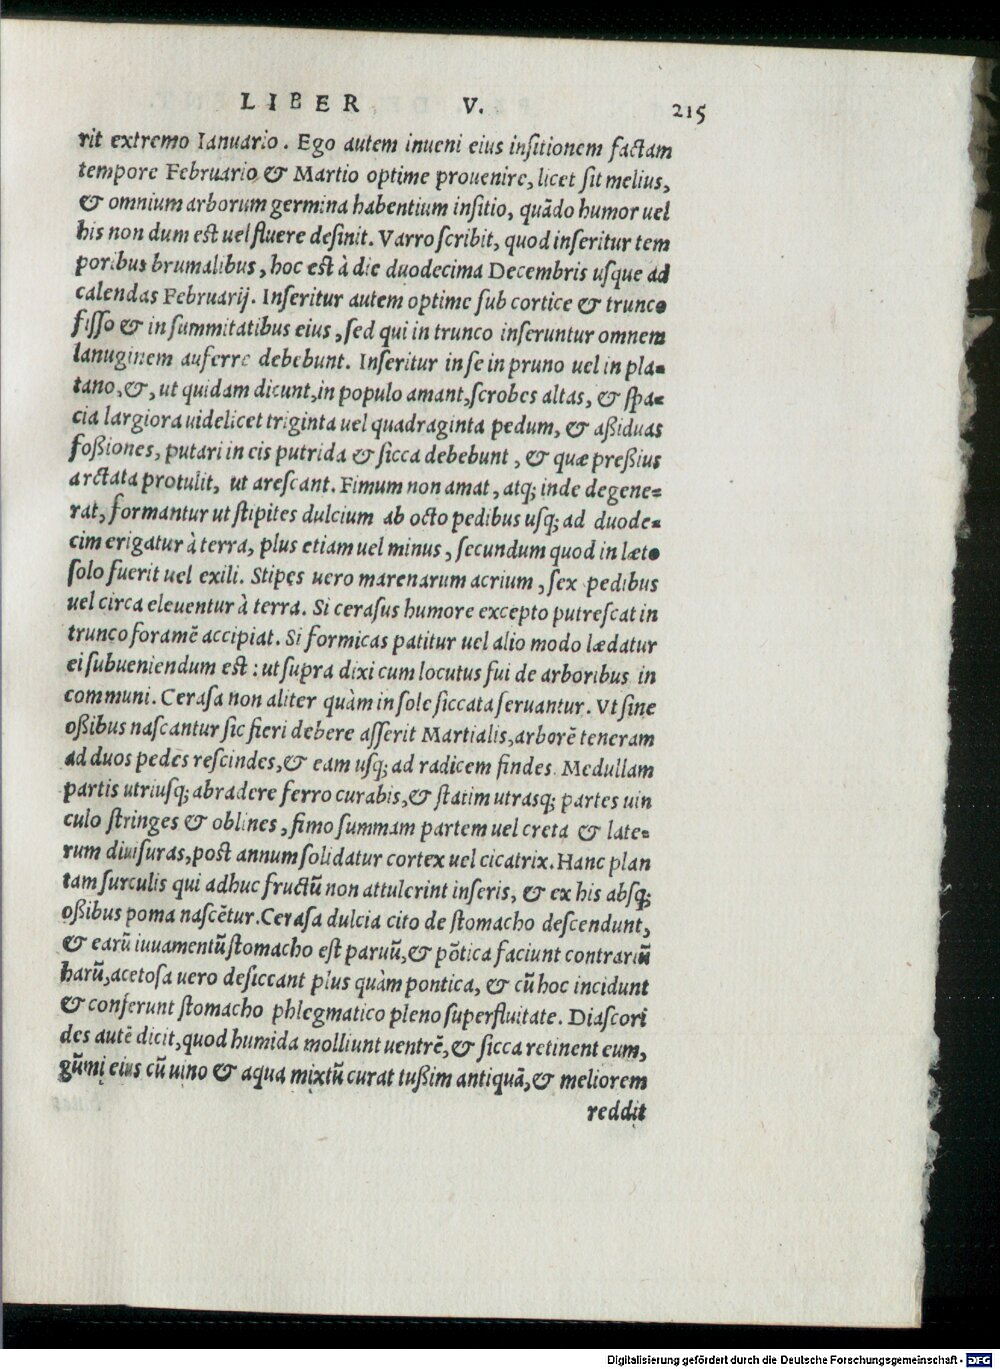 LIBER V. 215
rit extremo Ianuario. Ego autem inueni eius insitionem factam
tempore Februario & Martio optime prouenire, licet sit melius,
& omnium arborum germina habentium insitio, quãdo humor uel
his non dum est uel fluere desinit. Varro scribit, quod inseritur tem
poribus brumalibus, hoc est à die duodecima Decembris usque ad
calendas Februarij. Inseritur autem optime sub cortice & trunco
fisso & in summitatibus eius, sed qui in trunco inseruntur omnem
lanuginem auferre debebunt. Inseritur in se in pruno uel in pla=
tano, &, ut quidam dicunt, in populo amant, scrobes altas, & spa=
cia largiora uidelicet triginta uel quadraginta pedum, & aßiduas
foßiones, putari in eis putrida & sicca debebunt, & quæ preßius
arctata protulit, ut arescant. Fimum non amat, atq; inde degene=
rat, formantur ut stipites dulcium ab octo pedibus usq; ad duode=
cim erigatur à terra, plus etiam uel minus, secundum quod in læto
solo fuerit uel exili. Stipes uero marenarum acrium, sex pedibus
uel circa eleuentur à terra. Si cerasus humore excepto putrescat in
trunco foramẽ accipiat. Si formicas patitur uel alio modo lædatur
ei subueniendum est: ut supra dixi cum locutus fui de arboribus in
communi. Cerasa non aliter quàm in sole siccata seruantur. Vt sine
oßibus nascantur sic fieri debere asserit Martialis, arborẽ teneram
ad duos pedes rescindes, & eam usq; ad radicem findes. Medullam
partis utriusq; abradere ferro curabis, & statim utrasq; partes uin
culo stringes & oblines, fimo summam partem uel creta & late=
rum diuisuras, post annum solidatur cortex uel cicatrix. Hanc plan
tam surculis qui adhuc fructũ non attulerint inseris, & ex his absq;
oßibus poma nascẽtur. Cerasa dulcia cito de stomacho descendunt,
& earũ iuuamentũ stomacho est paruũ, & põtica faciunt contrariũ
harũ, acetosa uero desiccant plus quàm pontica, & cũ hoc incidunt
& conferunt stomacho phlegmatico pleno superfluitate. Diascori
des autẽ dicit, quod humida molliunt uentrẽ, & sicca retinent eum,
gũmi eius cũ uino & aqua mixtũ curat tußim antiquã, & meliorem
reddit
Digitalisierung gefördert durch die Deutsche Forschungsgemeinschaft - DFG